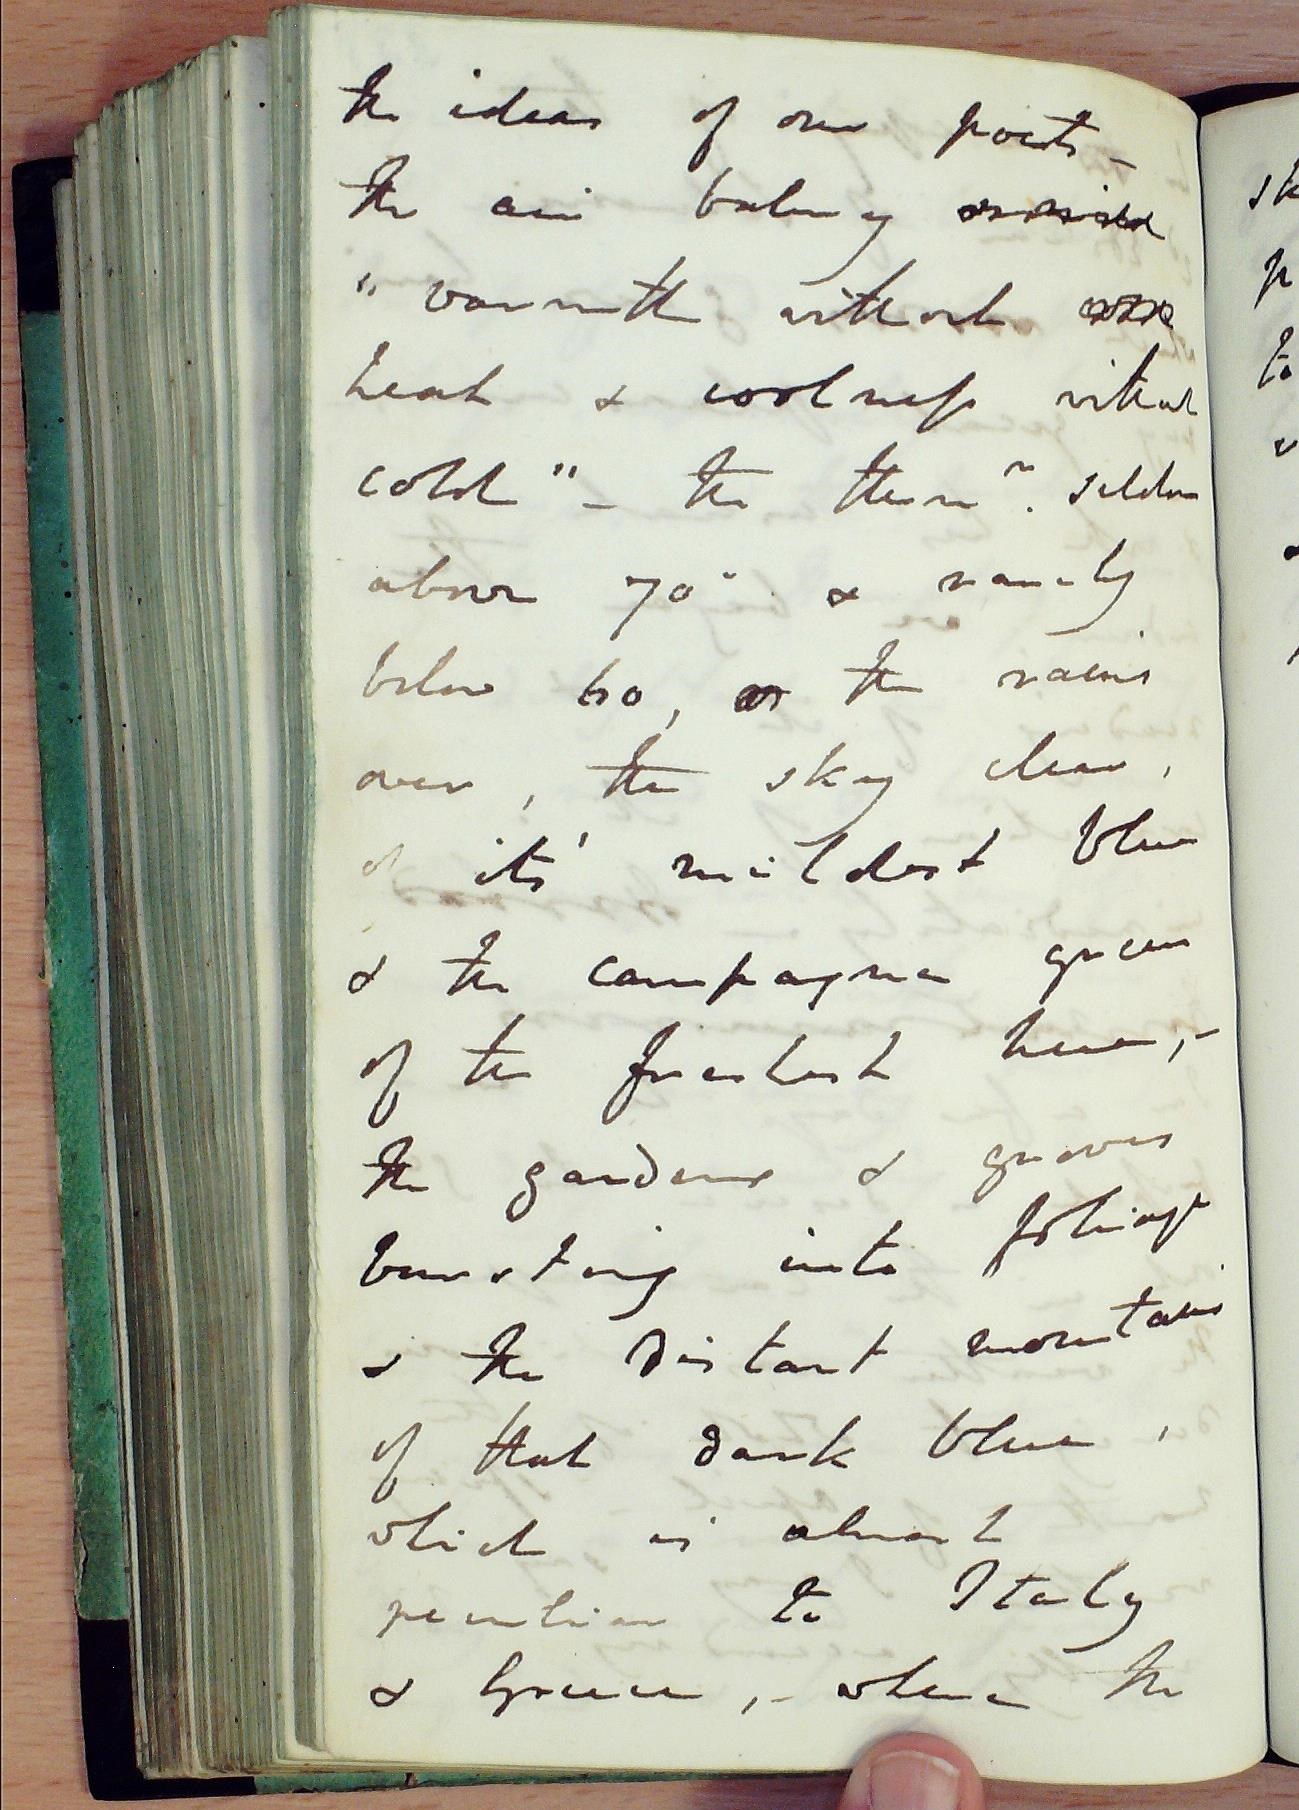 the ideas of our poets –
the air balmy
"warmth without
heat & coolness without
cold" – the therm<sup>r</sup>. seldom
above 70° & rarely
below 60, the rains
over, the sky clear,
of its' mildest blue
& the campagna green
of the freshest hue, –
the gardens & groves
bursting into foliage
& the distant mountains
of that dark blue,
which is almost
peculiar to Italy
& Greece, – where the
sk
p
to